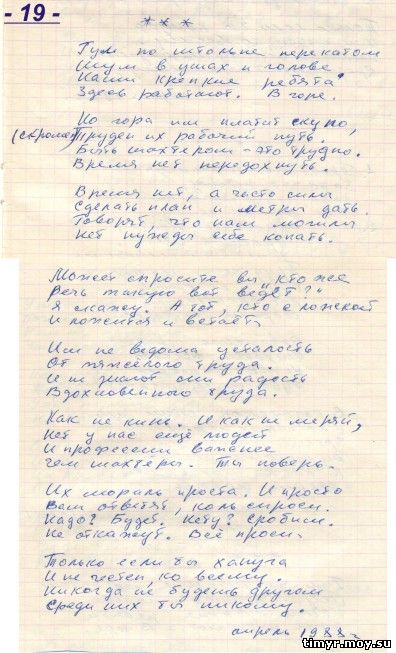 - 19 -
* * *
Гул по штольне перекатом
Шум в ушах и голове
Наши крепкие ребята
Здесь работают. В горе.
Но гора им платит скупо,
(скромен) Труден их рабочий путь.
Быть шахтером - это трудно.
Время нет передохнуть.
Время нет, а часто силы
Сделать план и метры дать.
Говорят, что нам могилы
Нет нужды себе копать.
Может спросите вы „кто же
Речь такую вот ведёт?"
Я скажу. А тот, кто с ложкой
И ложится и встаёт.
Им не ведома усталость
От тяжёлого труда.
И не знают они радость
Вдохновенного труда.
Как не кинь. И как не меряй,
Нет у нас ещё людей
И профессии важнее
Чем шахтеры. Ты поверь.
Их мораль проста. И просто
Вам ответят, коль спроси.
Надо? Будет. Нету? Сробим.
Не откажут. Всё проси.
Только если ты хапуга
И не честен, ко всему.
Никогда не будешь другом
Среди них ты никому.
апрель 1988 г.
timyr.moy.su